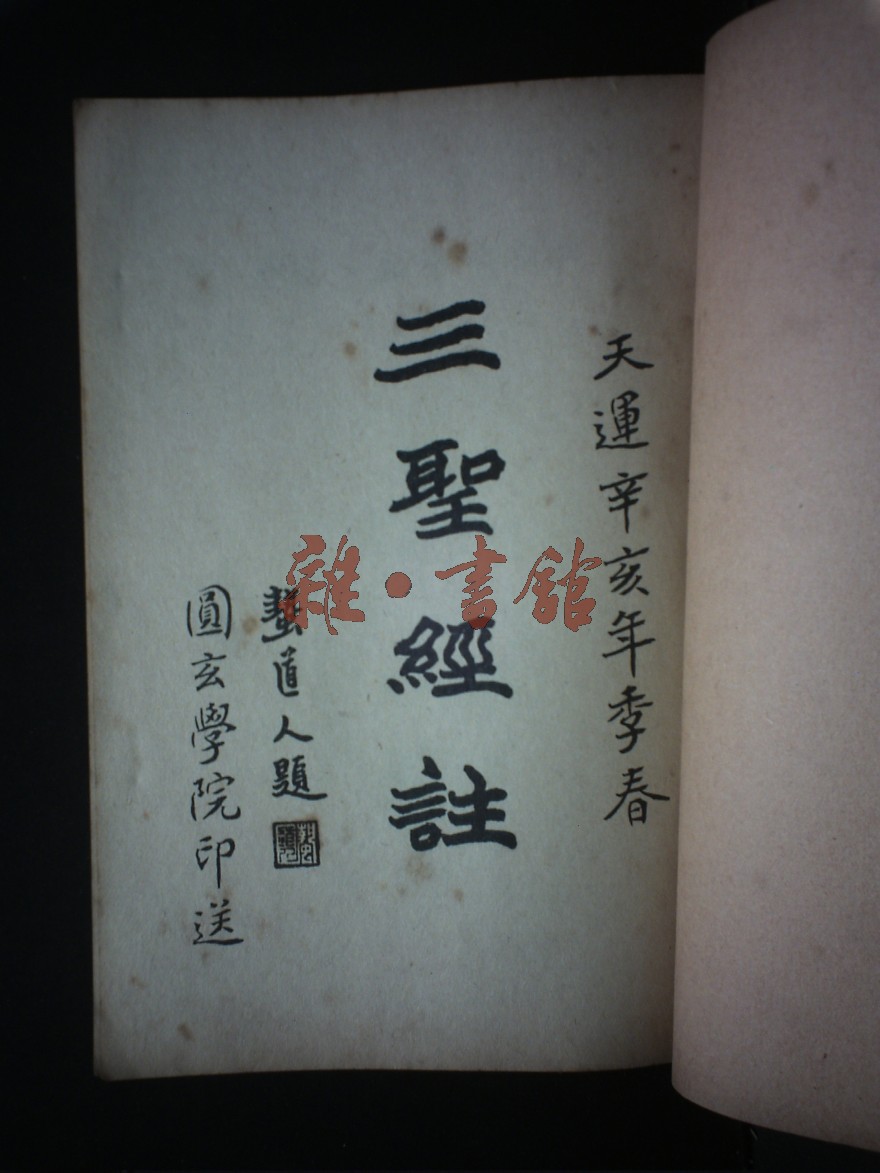 天運辛亥年季春
三聖經註
道人題
圓玄學院印送
雜·書館